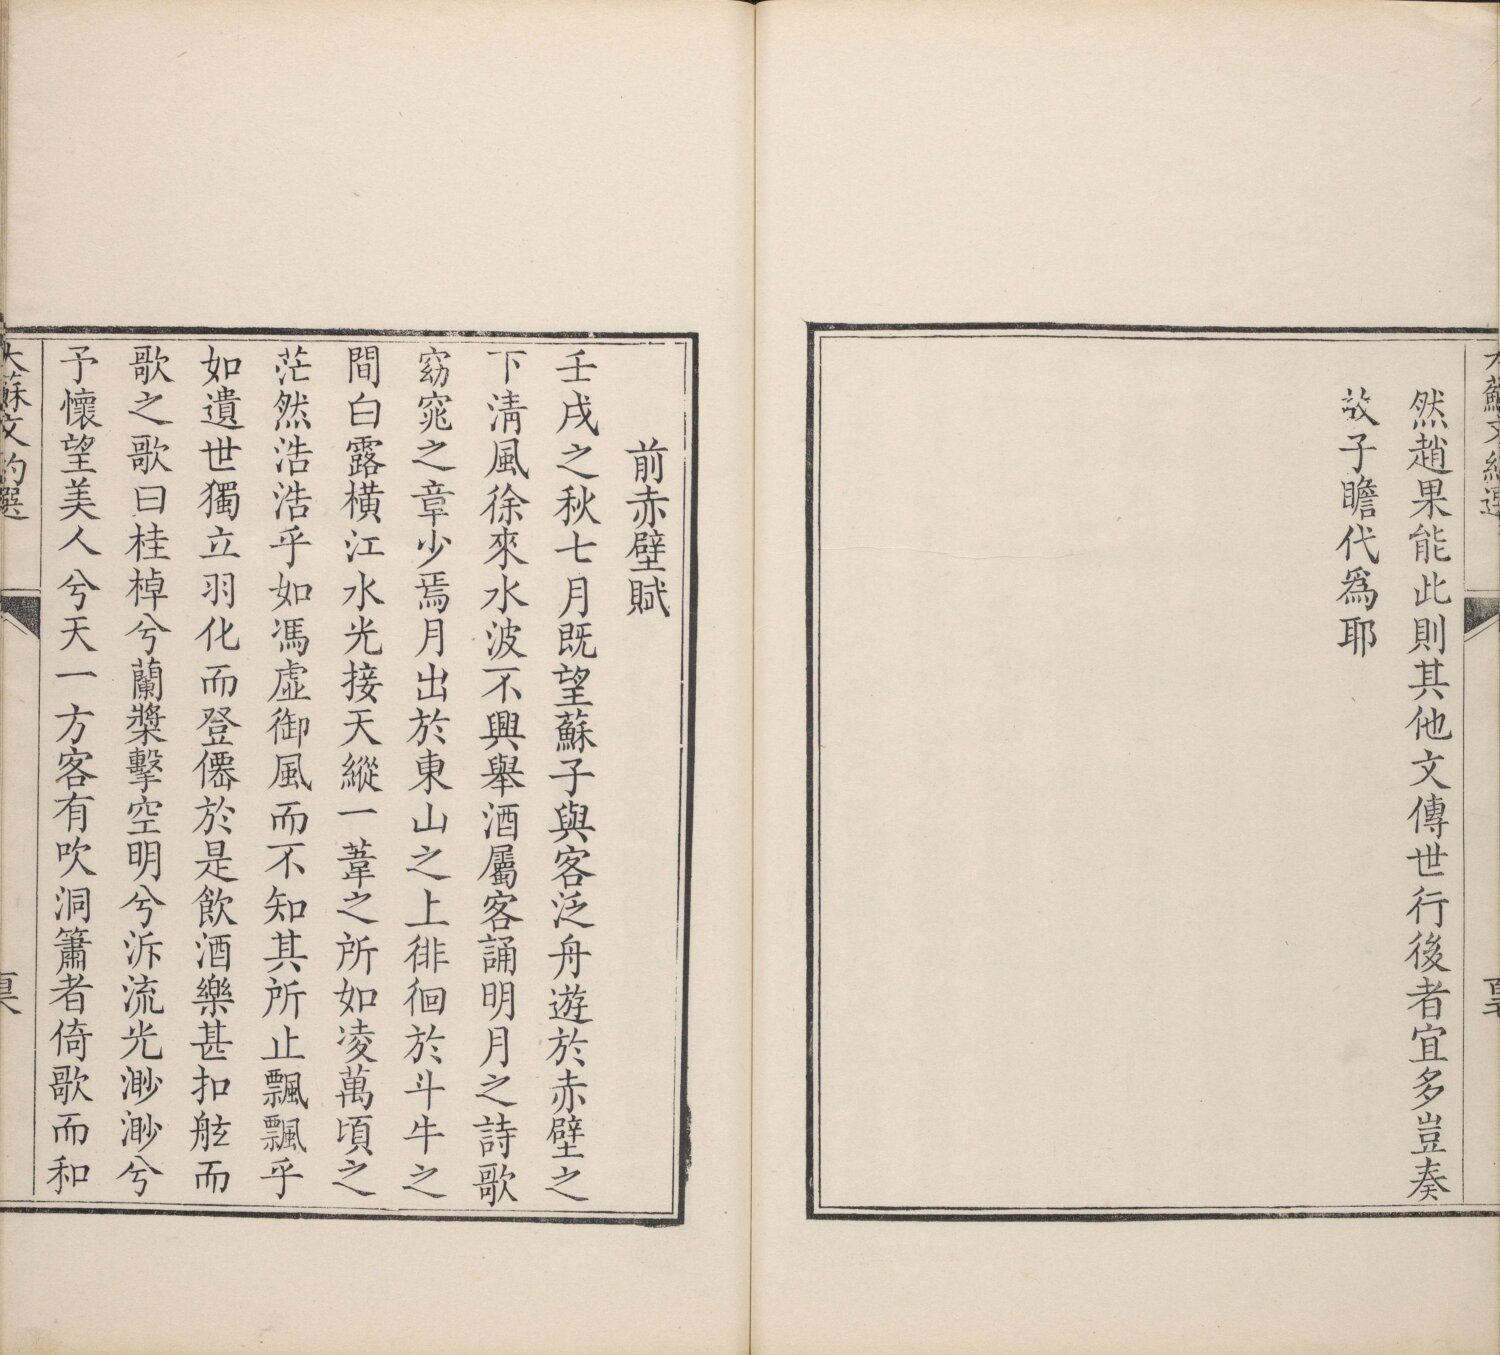 然趙果能此則其他文傳世行後者宜多豈奏
故子瞻代爲耶
前赤壁賦
壬戌之秋七月既望蘇子與客泛舟遊於赤壁之
下淸風徐來水波不興舉酒屬客誦明月之詩歌
窈窕之章少焉月出於東山之上徘徊於斗牛之
間白露橫江水光接天縱一葦之所如凌萬頃之
茫然浩浩乎如馮虛御風而不知其所止飄飄乎
如遺世獨立羽化而登僊於是飲酒樂甚扣舷而
歌之歌曰桂棹兮蘭槳擊空明兮泝流光渺渺兮
予懷望美人兮天一方客有吹洞簫者倚歌而和